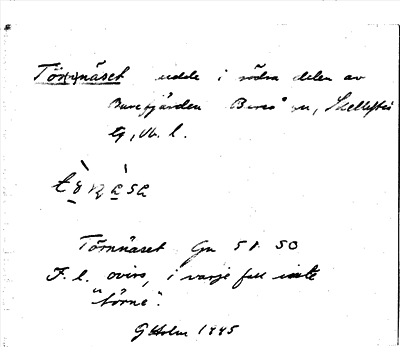 Törnnäset udde i södra delen av
Burefjärden Bureå sn, Skellefteå
tg, Vb. l.
Törnnäset Gn 51 50
F. l. oviss, i varje fall inte
"törne".
G Holm 1945